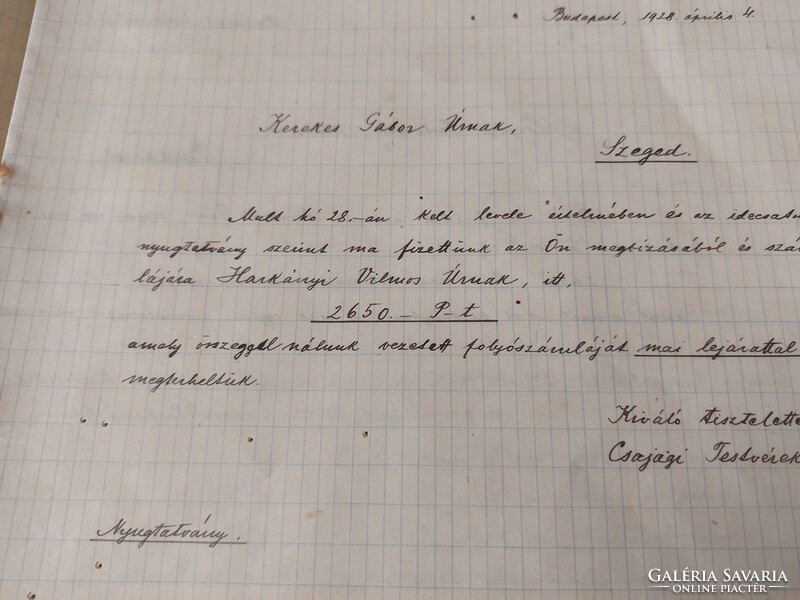 Budapest, 1928. április 4.
Kerekes Gábor Úrnak,
Szeged.
Mult hó 28.-án kelt levele értelmében és az idecsato
nyugtatvány szerint ma fizettünk az Ön megbizásából és szám
lájára Harkányi Vilmos Úrnak, itt,
2650.— P-t
amely összeggel nálunk vezetett folyószámláját mai lejárattal
megterheltük.
Kiváló tisztelette
Csajági Testvérek
Nyugtatvány.
GALÉRIA SAVARIA
ONLINE PIACTÉR